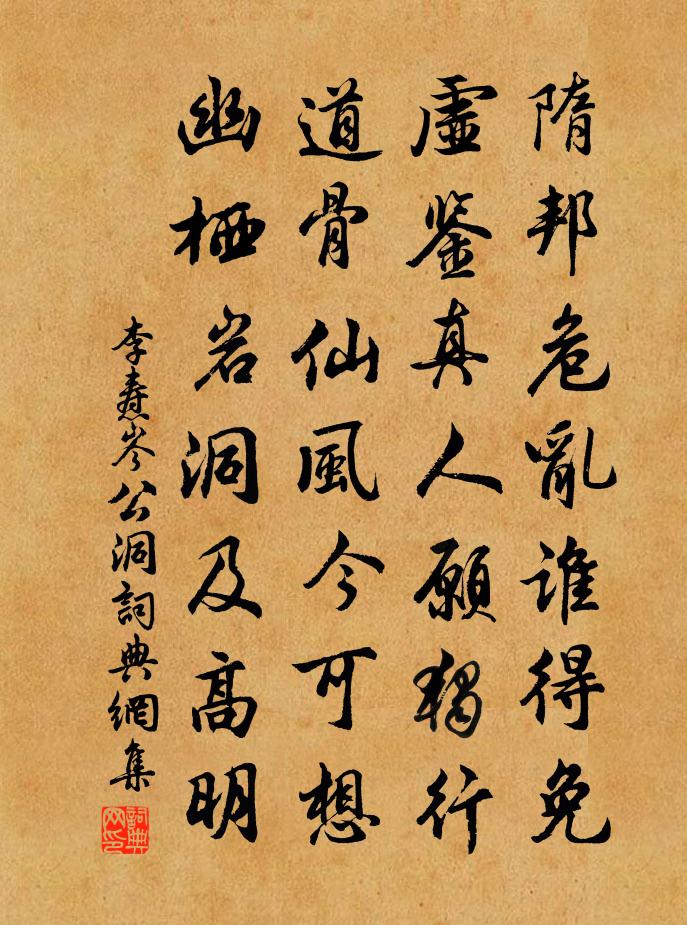 隋邦危亂谁得免
虛鉴真人願獨行
道骨仙風今可想
幽栖岩洞及高明
李燾岑公洞詞典網集
詞典网印